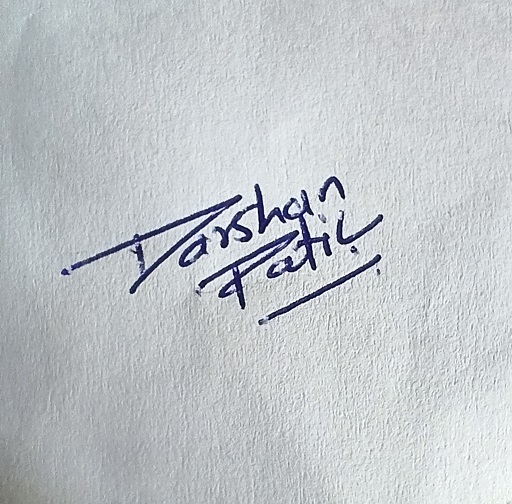 Darshan
Patil